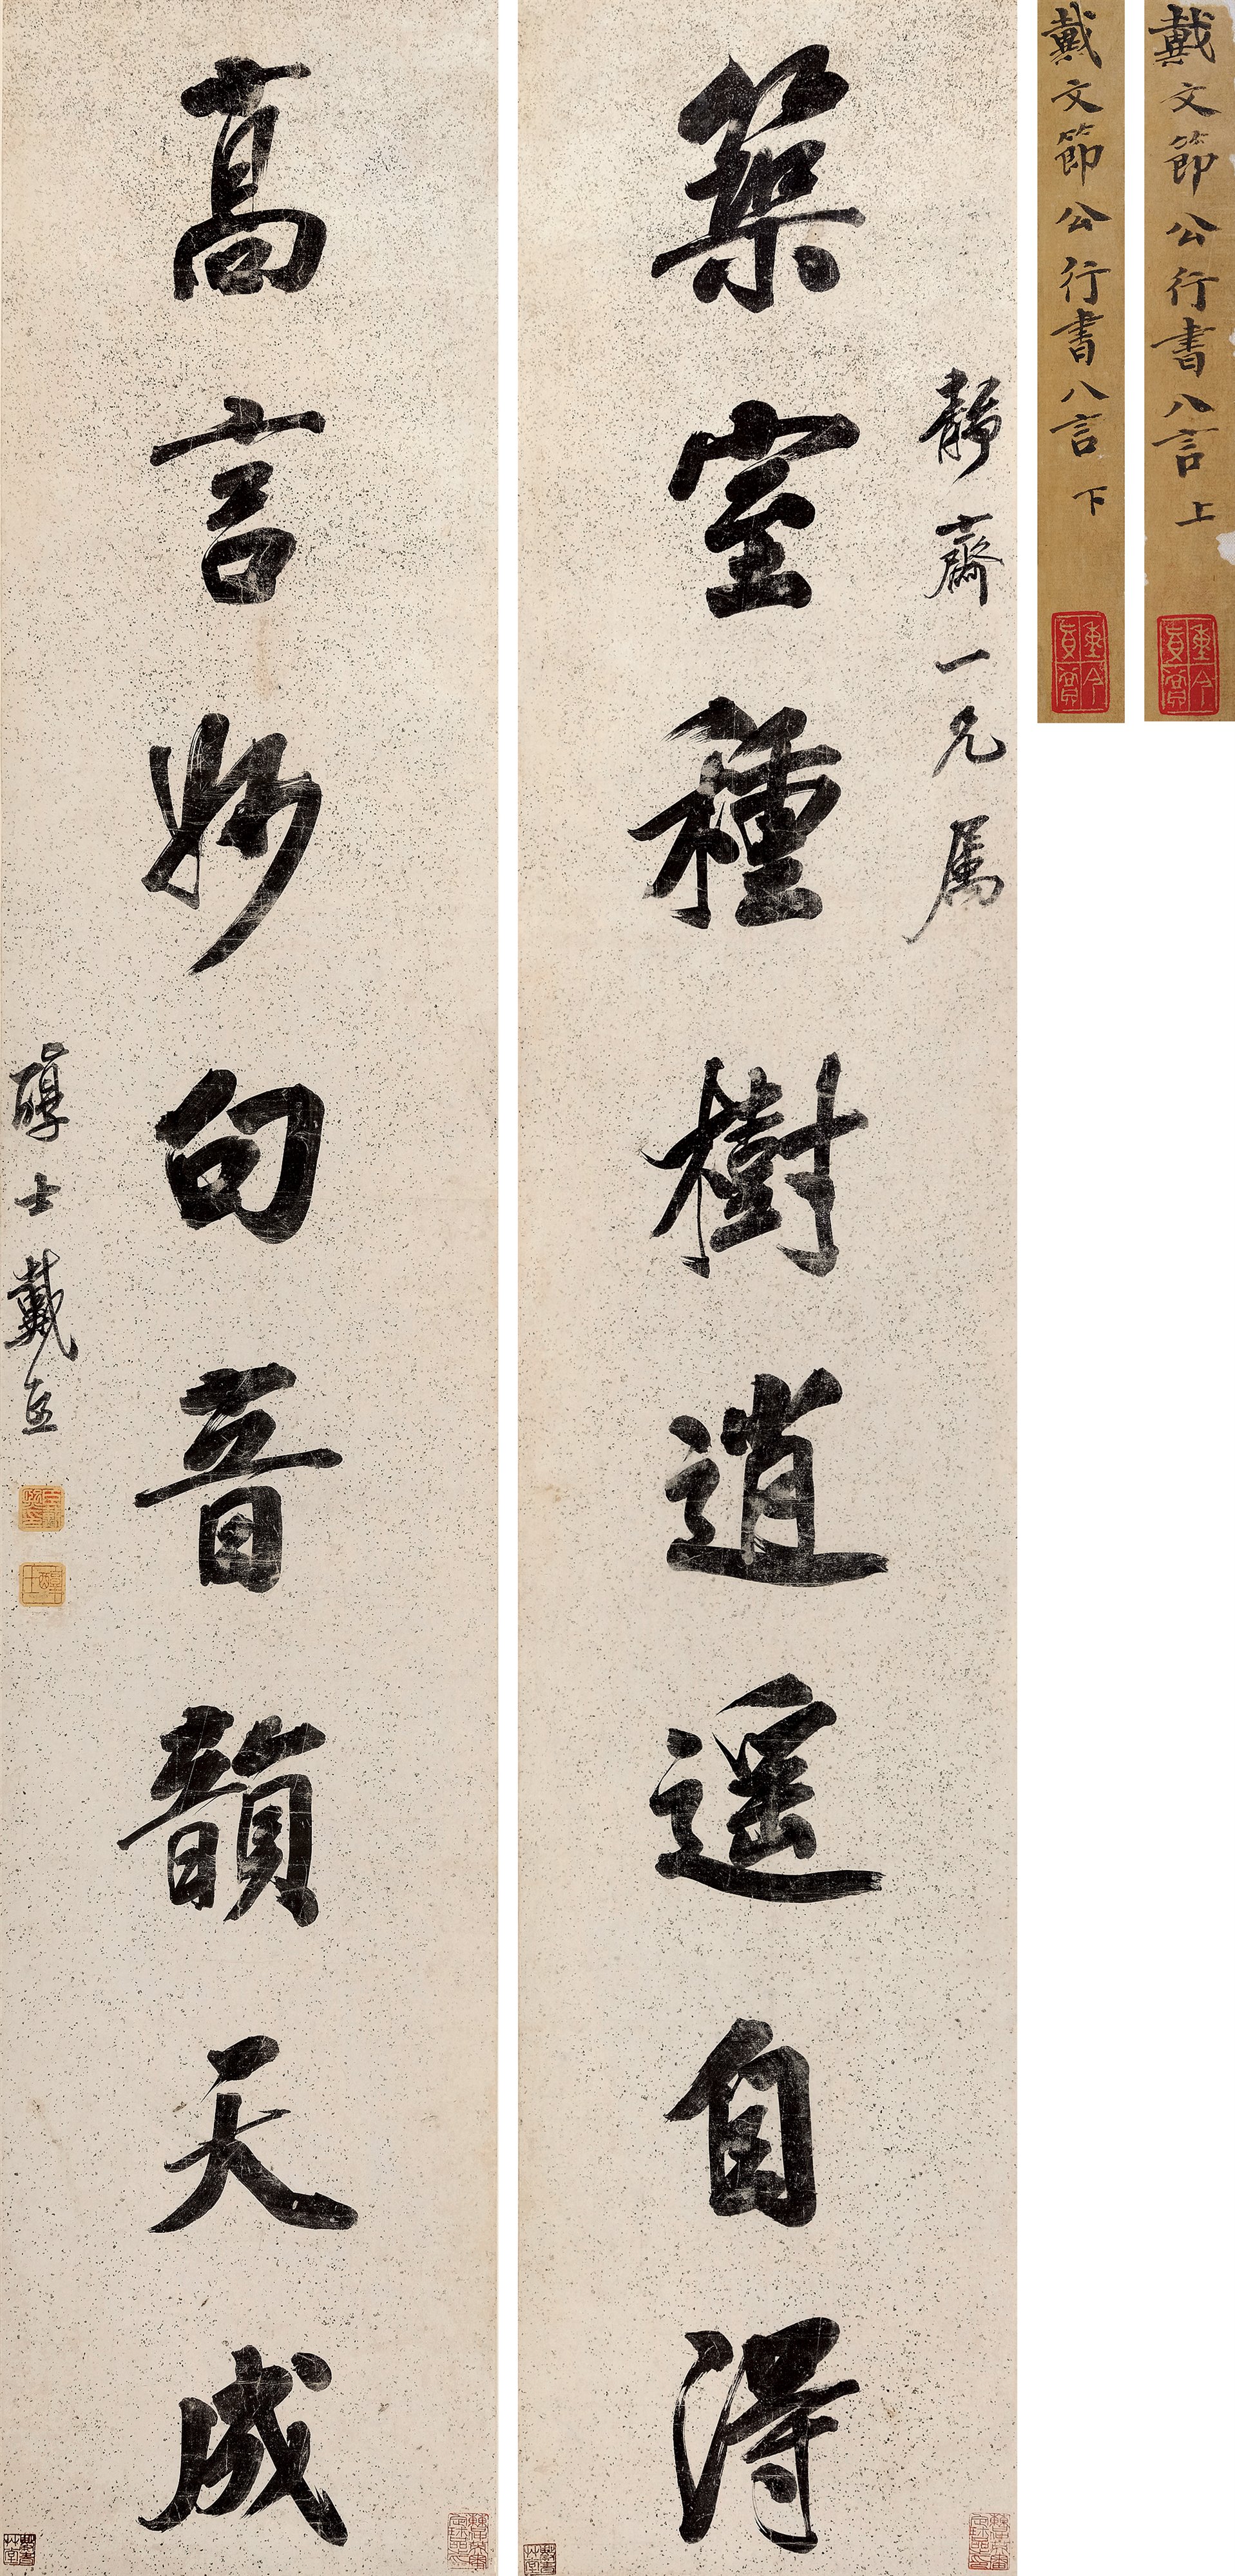 戴文節公行書八言 上
戴文節公行書八言 下
靜齋一兄属
築室種樹逍遥自得
高言妙句音韻天成
醇士戴熙